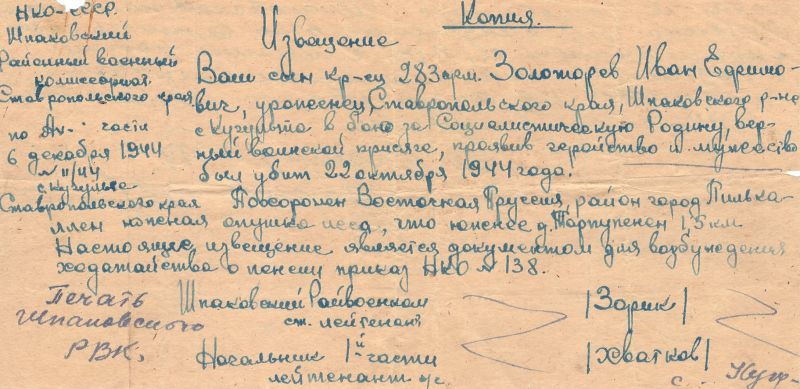 Копия.
НКО-СССР.
Шпаковский
Районный военный
комиссариат
Ставропольского края
по части
6 декабря 1944
№ 11/44
с. Кугульта
Ставропольского края
Извещение
Ваш сын кр-ец 283 арм. Золоторев Иван Ефримо-
вич, уроженец Ставропольского края, Шпаковского р-на
с Кугульта в бою за Социалистическую Родину, вер-
ный воинской присяге, проявив геройство и мужество
был убит 22 октября 1944 года.
Похоронен Восточная Пруссия, район город Пилька-
ллен южная опушка леса, что южнее д. Тарпупенен 1,5 км
Настоящее извещение является документом для возбуждения
ходатайства о пенсии приказ НКО № 138.
Печать
Шпаковского
РВК.
Шпаковский Райвоенком
ст. лейтенант
/Зорик/
Начальник 1й части
лейтенант
/Хватков/